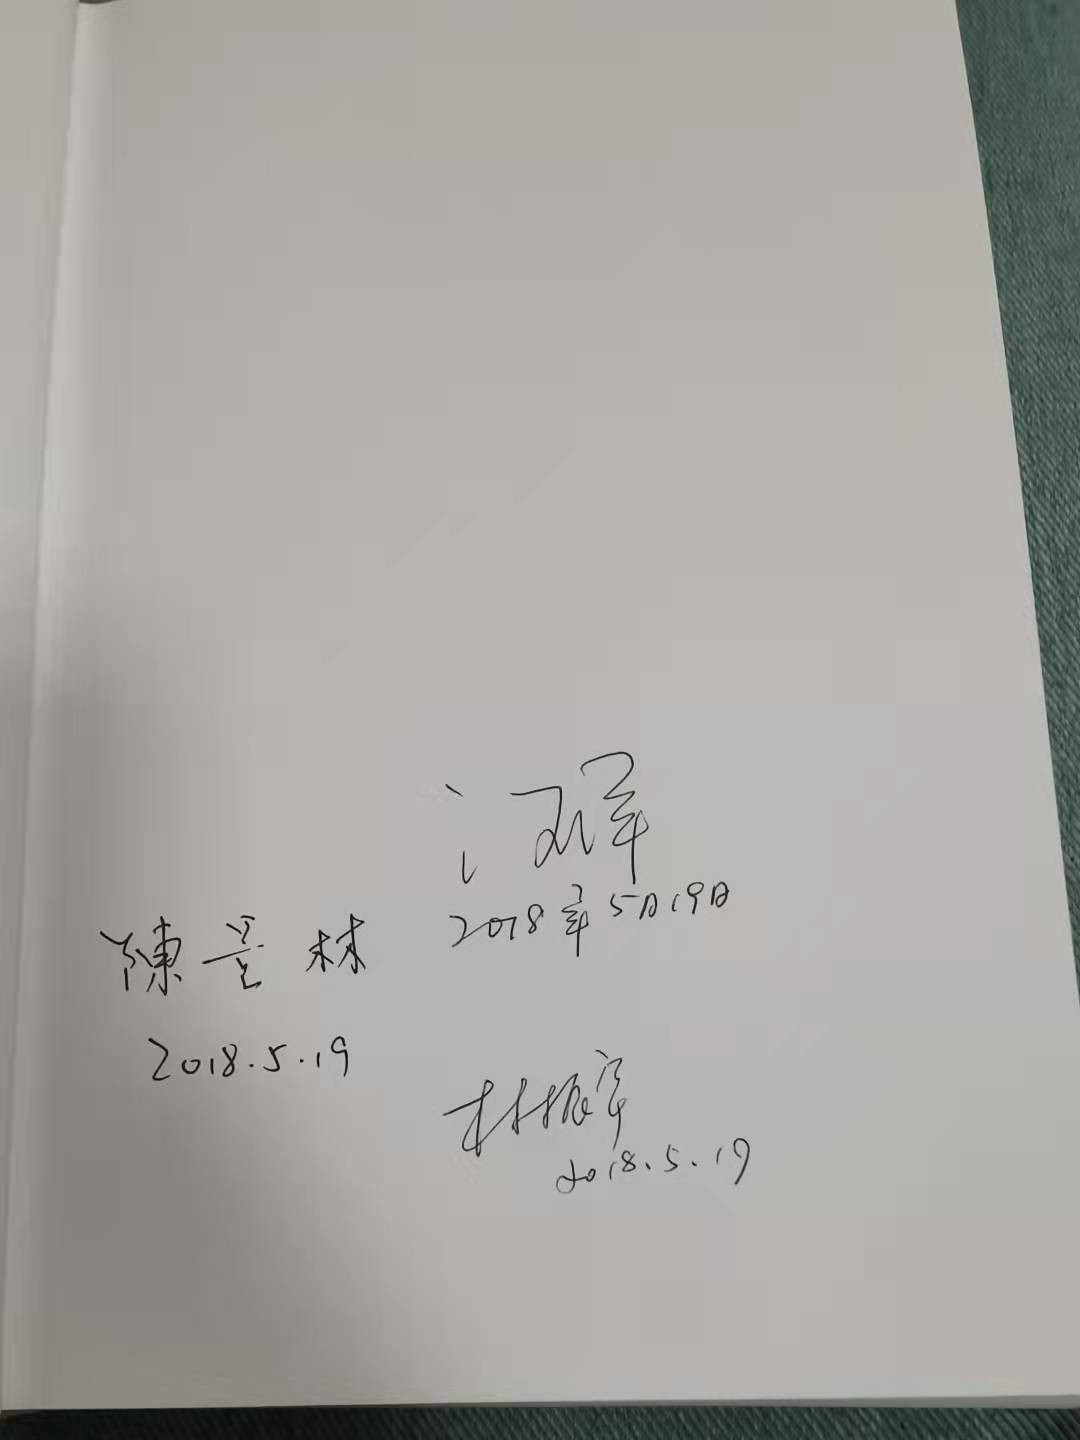 2018年5月19日
陳景林
2018.5.19
林振宇
2018.5.19